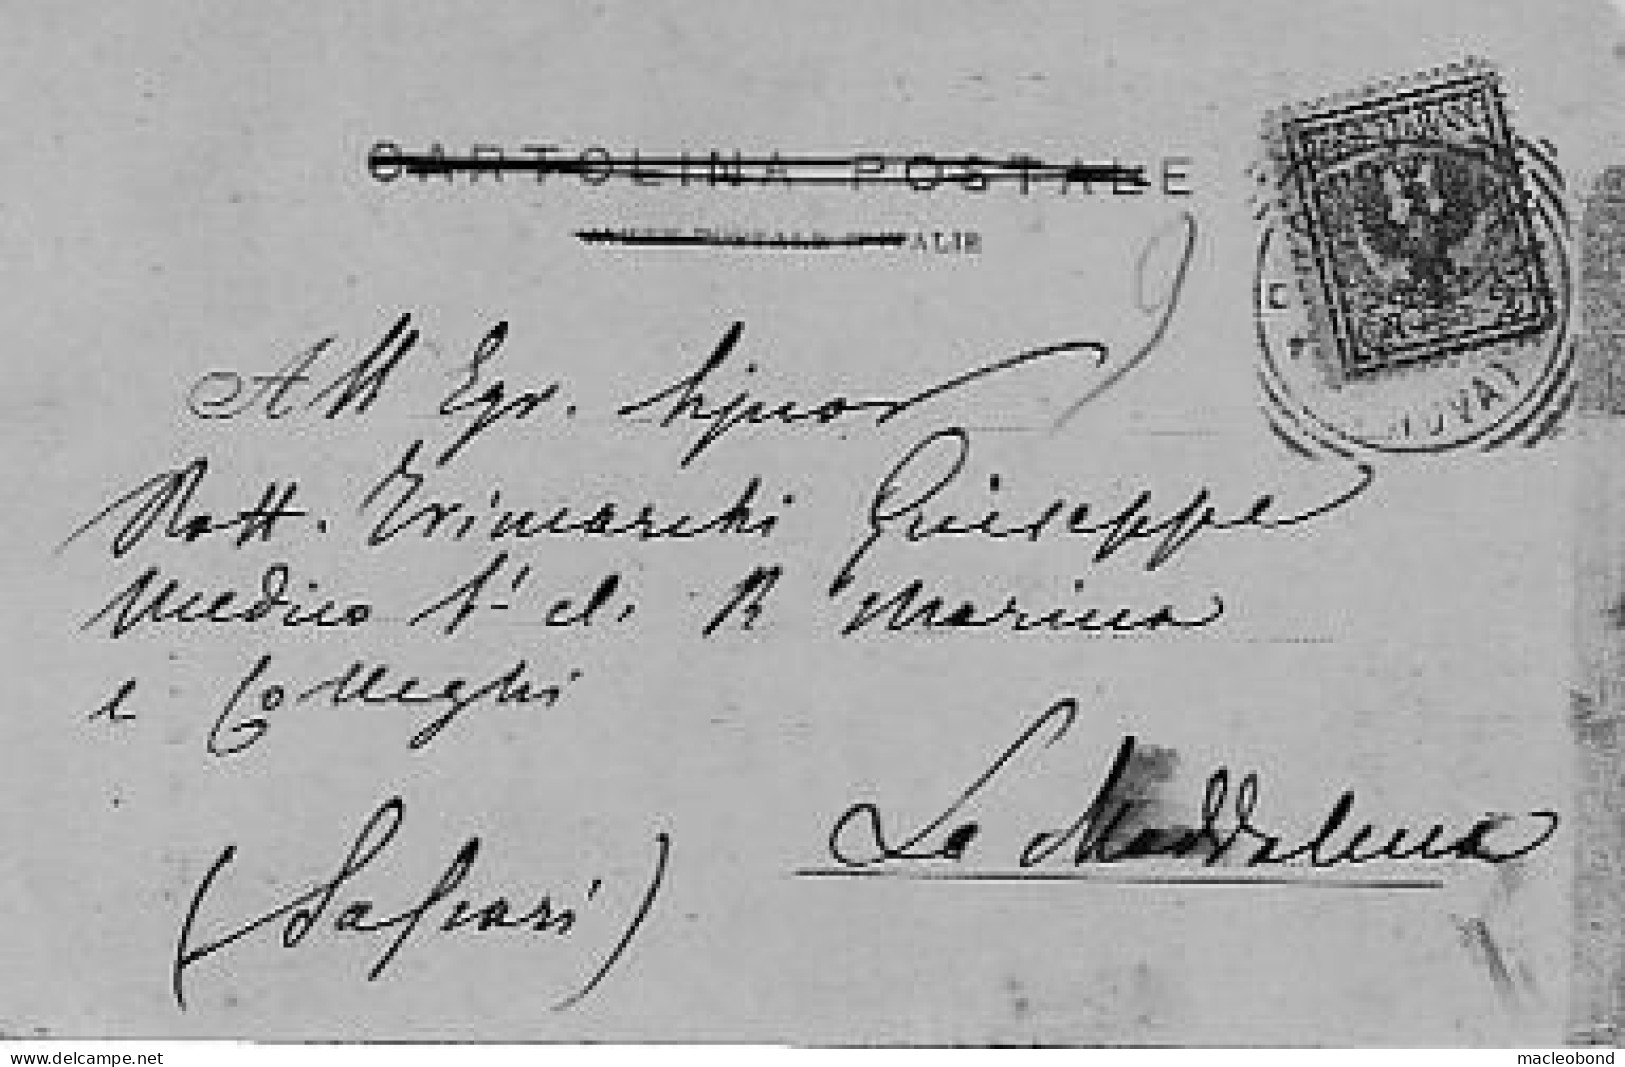 CARTOLINA POSTALE
All Egr. Signor
Dott. Trimarchi Giuseppe
Medico 1ª cl. R Marina
e Colleghi
La Maddalena
(Sassari)
www.delcampe.net
macleobond